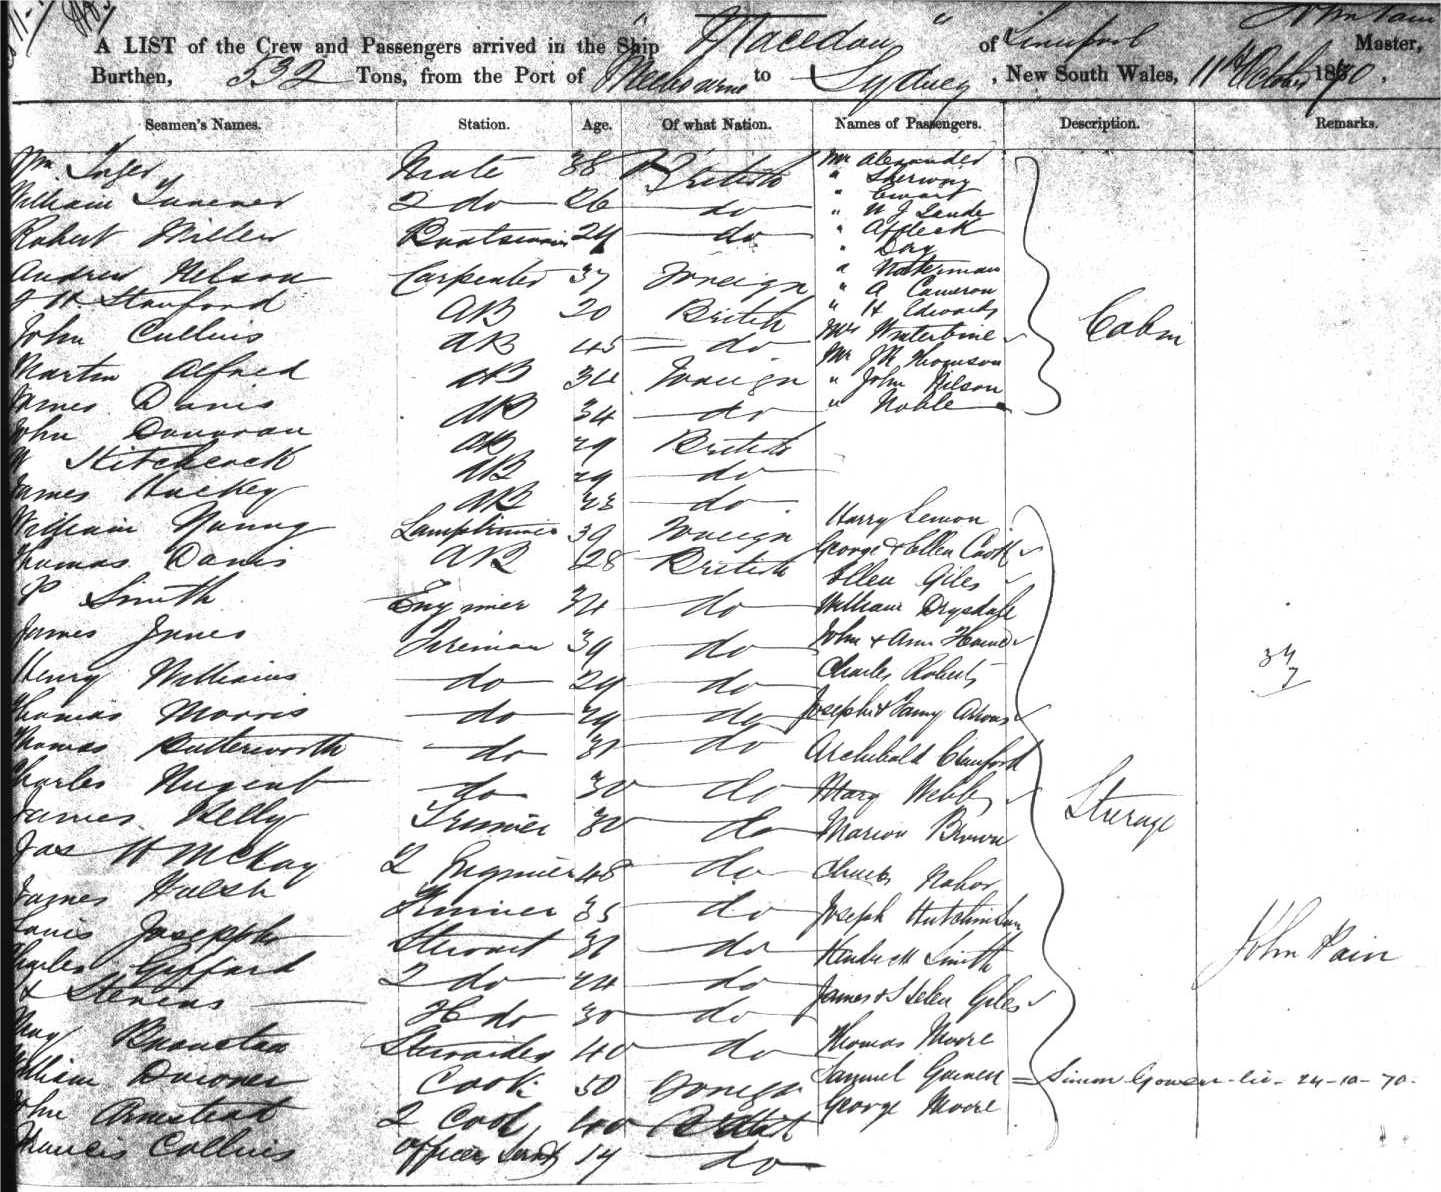 John Pain
A LIST of the Crew and Passengers arrived in the Ship " Macedon " of Liverpool Master,
Burthen, 532 Tons, from the Port of Melbourne to Sydney, New South Wales, 11th October 1870,
Seamen's Names. Station. Age. Of what Nation. Names of Passengers. Description. Remarks.
Wm Mate 38 British Mr Alexander
William 2 do 26 do " Sherwing
" Ewart
Robert Miller Boatswain 24 do "
" Affleck
" Day
Andrew Nelson Carpenter 37 Foreign "
" A Cameron
J H Stanford AB 20 British " H Edwards
John Cullins AB 45 do Mrs Winterbine Cabin
Martin Alfred AB 34 Foreign Mr Thomson
" John Nilson
James Davis AB 34 do " Noble
John Donovan AB 29 British
W Hitchcock AB 29 do
James Hackey AB 23 do
Harry Lemon
William Nanny Lamptrimmer 39 Foreign
George & Ellen Cook
Thomas Davis AB 28 British
Ellen Giles
P Smith Engineer 34 do William Drysdale
James Innes Fireman 39 do John & Ann
Henry Williams do 29 do Charles Roberts
34
7
Thomas Morris do 29 do Joseph & Fanny
Thomas Butterworth do 31 do Archibald Crawford
Charles Nugent do 30 do Mary Webb Sterage
James Kelly Trimmer 30 do Marion Brown
Jas H McKay 2 Engineer 48 do Nahor
James Walsh Trimmer 35 do Joseph Hutchinson
Louis Joseph Stewart 36 do Smith John Pain
Charles Giffard 2 do 24 do
James & Helen Giles
Stevens do 30 do
Thomas Moore
Stewardess 40 do
Samuel Simon Gowen 24-10-70
William Cook 50 Foreign
George Moore
John Armstead 2 Cook 40 British
Francis Collins Officers Servt 14 do